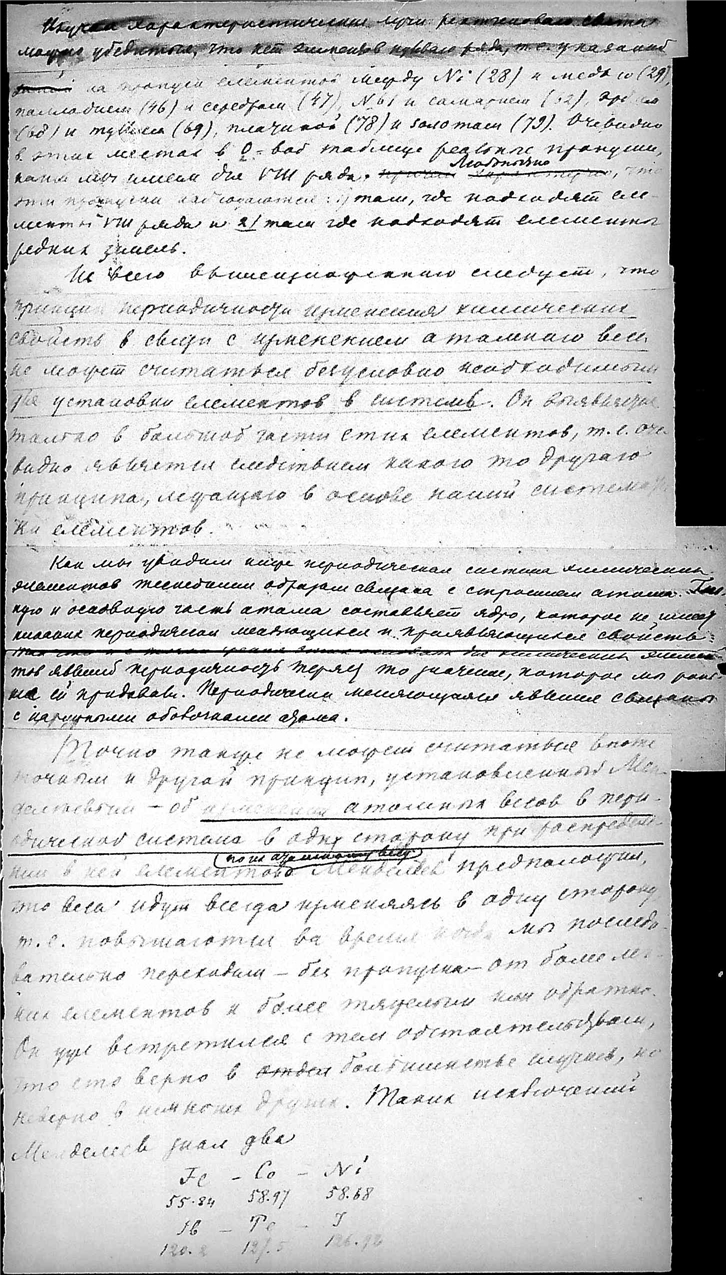 Изучая характеристические лучи рентгенового света
можно убедиться, что нет элементов нулевого ряда, т.е. указаний
на пропуск елементов между Ni (28) и медью (29),
палладием (46) и серебром (47), N 61 и самарием (62), эрбием
(68) и тулием (69), платиной (78) и золотом (79). Очевидно
в этих местах в 0-вой таблице реальные пропуски,
какие мы имеем для VIII ряда. Любопытно что
эти пропуски наблюдаются: 1) там, где подходят еле-
менты VIII ряда и 2) там где подходят елементы
редких земель.
Из всего вышеизложенного следует, что
принцип периодичности изменения химических
свойств в связи с изменением атомного веса
не может считаться безусловно необходимым
для установки елементов в системе. Он выявляется
только в большой части етих елементов, т.е. оче-
видно является следствием какого то другого
принципа, лежащаго в основе нашей системати-
ки елементов.
Как мы увидим ниже периодическая система химических
элементов теснейшим образом связана с строением атома.
ную и основную часть атома составляет ядро, которое не имеет
никаких периодически меняющихся и проявляющихся свойств
тов явлений периодичность теряет то значение, которое мы рань
ше ей придавали. Периодически меняющиеся явления связаны
с наружными оболочками атома.
Точно также не может считаться вполне
точным и другой принцип, установленный Мен-
делеевым – об изменении атомных весов в пери-
одической системе в одну сторону при распределе-
нии в ней елементов по их атомному весу Менделеев предположил,
что веса идут всегда изменяясь в одну сторону
т.е. повышаются во время когда мы последо-
вательно переходим – без пропуска – от более лег-
ких елементов к более тяжелым или обратно.
Он уже встретился с тем обстоятельством,
что ето верно в большинстве случаев, но
неверно в немногих других. Таких исключений
Менделеев знал два
Fe – Co – Ni
55.84 58.97 58.68
Sb – Te – J
120.2 127.5 126.92